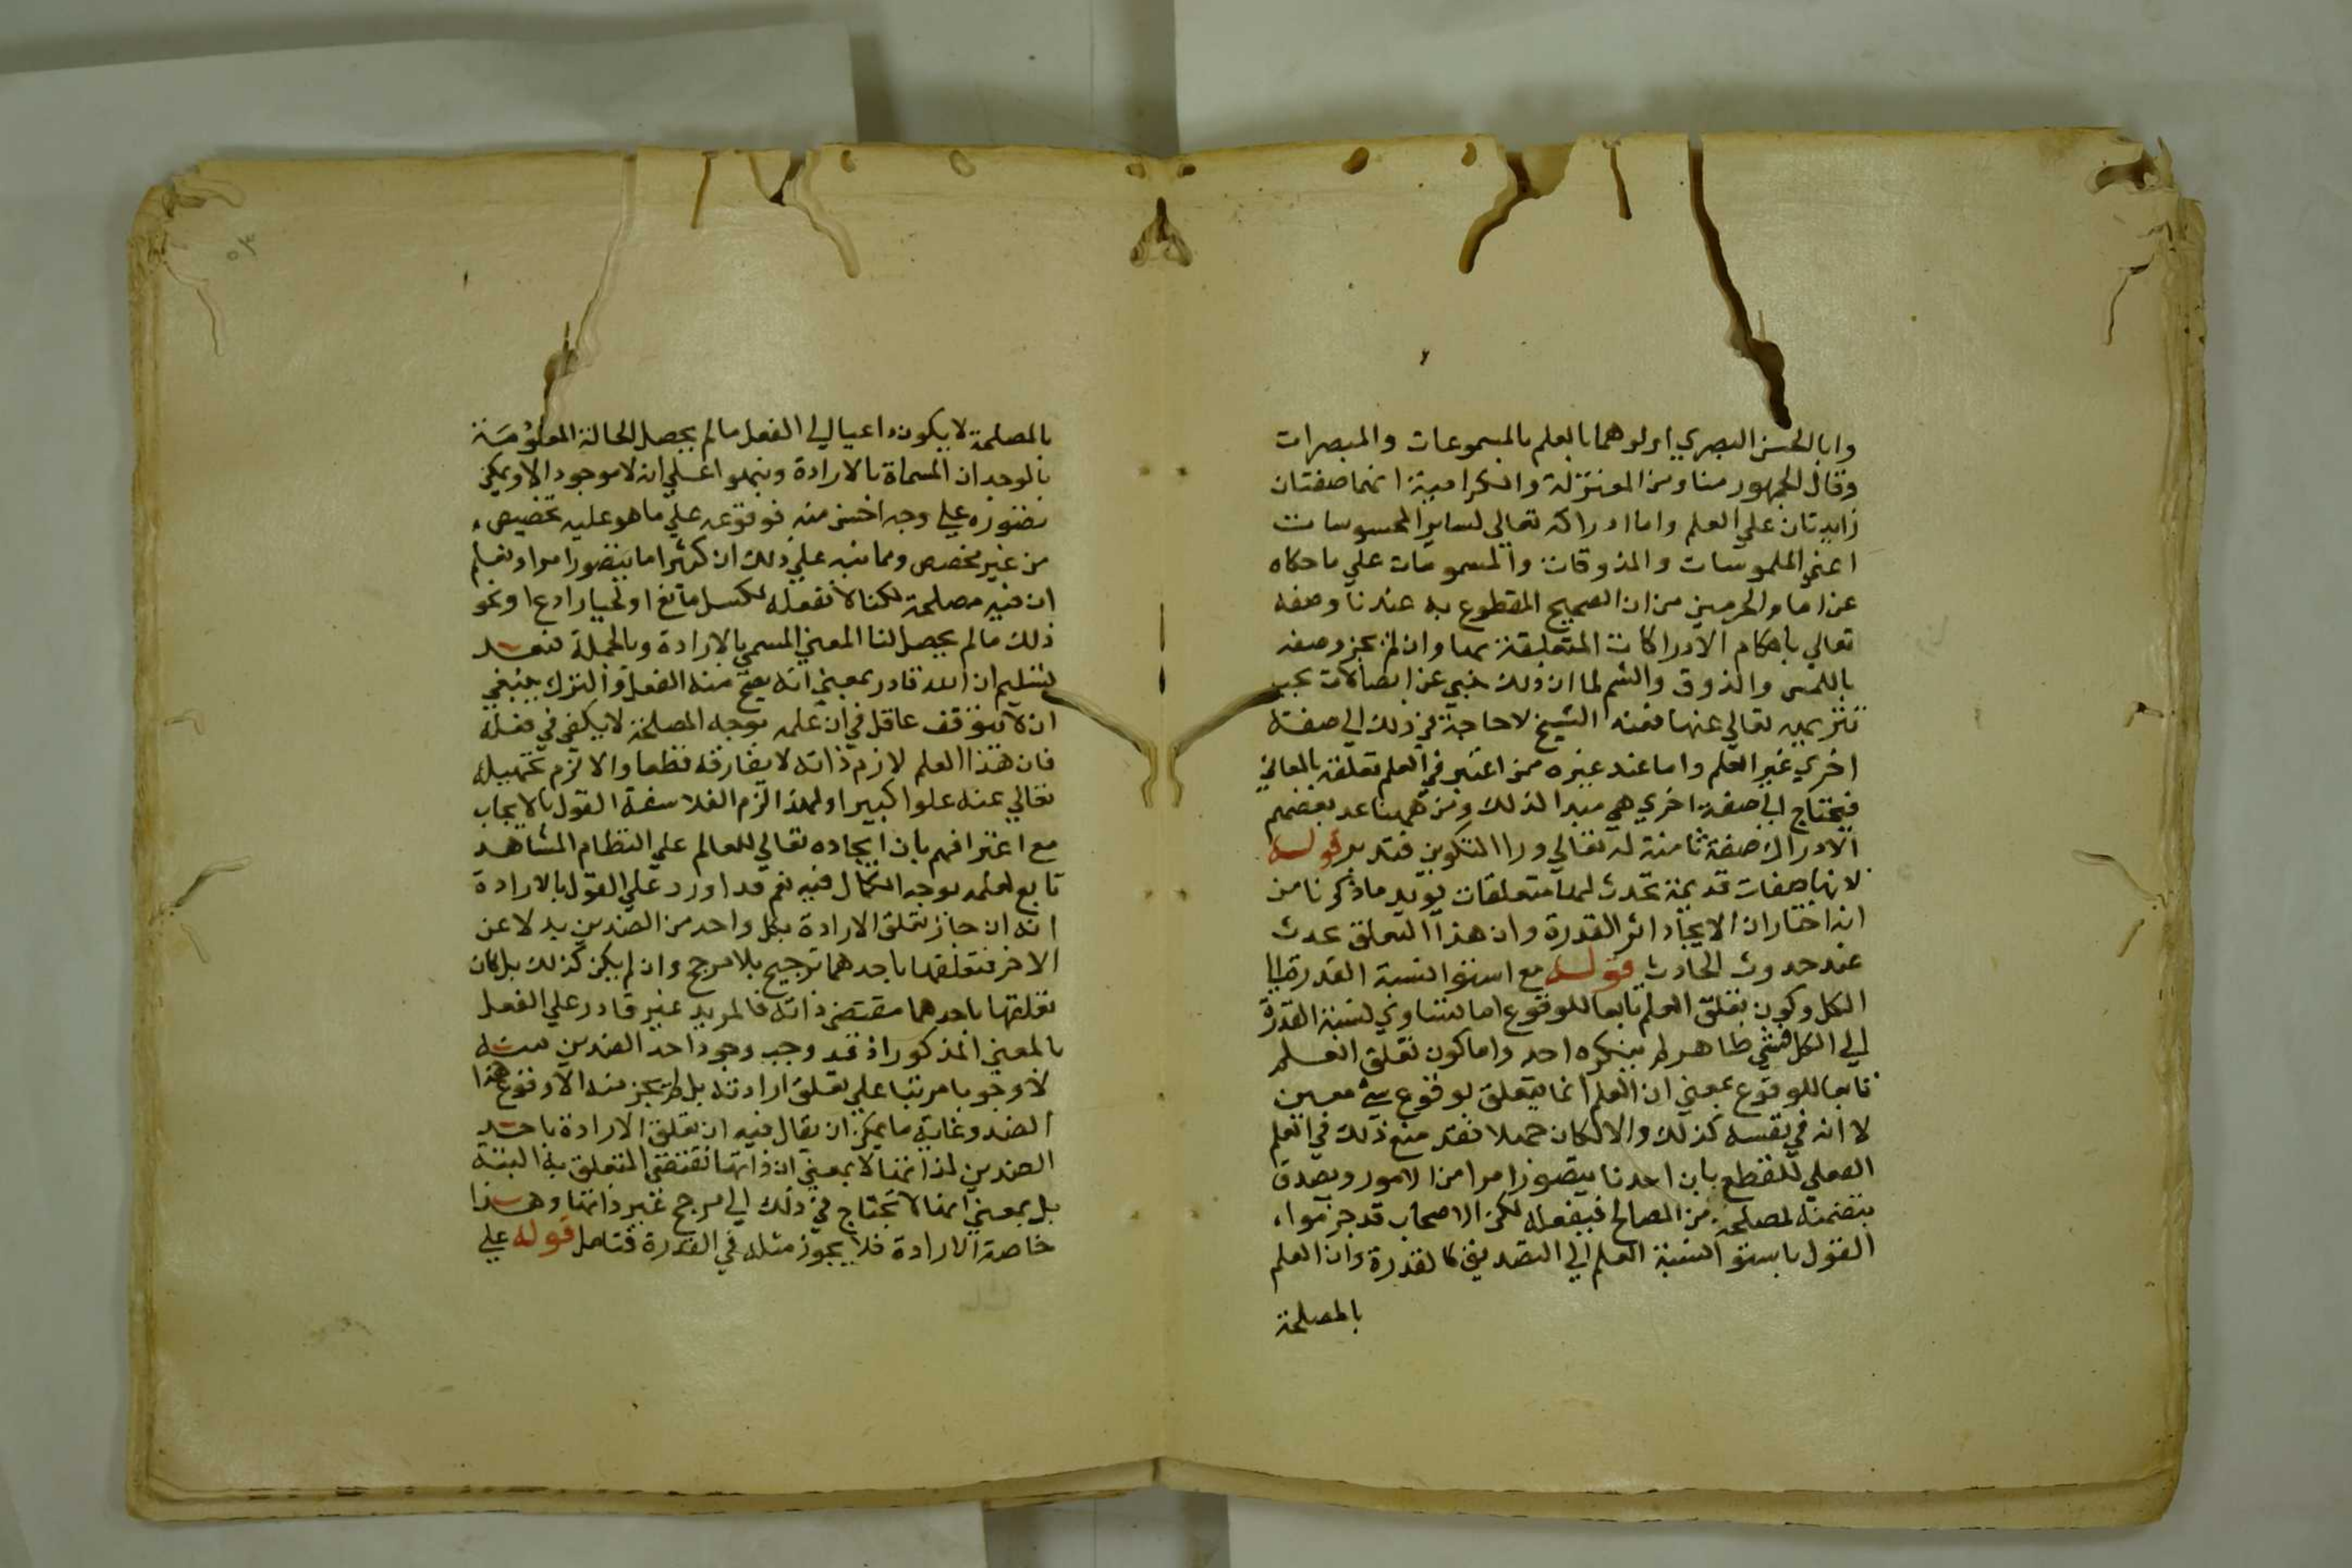 وابا الحسن البصري اولوهما بالعلم بالمسموعات والمبصرات
وقال الجمهور منا ومن المعتزلة والكرامية انهما صفتان
زايدتان علي العلم واما ادراكه تعالي لساير المحسوسات
اعني الملموسات والمذوقات والمسمومات علي ما حكاه
عن امام الحرمين من ان الصحيح المقطوع به عندنا وصفه
تعالي باحكام الادراكات المتعلقة بها وان لم يجز وصفه
باللمس والذوق والشم لما ان ذلك ينبي عن اتصالات يجب
تنزيهه تعالي عنها فعند الشيخ لا حاجة في ذلك الي صفة
اخري غير العلم واما عند غيره ممن اعتبر في العلم تعلقه بالمعاني
فيحتاج الي صفة اخري هي مبدا لذلك ومن ههنا عد بعضهم
الادراك صفة ثامنة له تعالي ورا التكوين فتدبر قوله
لانها صفات قديمة تحدث لها متعلقات يويد ما ذكرنا من
انه اختار ان الايجاد اثر القدرة وان هذا التعلق يحدث
عند حدوث الحادث قوله مع استوا نسبة القدرة الي
الكل وكون تعلق العلم تابعا للوقوع اما تساوي نسبة القدرة
الي الكل فشي ظاهر لم ينكره احد واما كون تعلق العلم
تابعا للوقوع بمعني ان العلم انما يتعلق بوقوع شي معين
لا انه في نفسه كذلك والا لكان جهلا فقد منع ذلك في العلم
الفعلي للقطع بان احدنا يتصور امرا من الامور ويصدق
بتضمنه لمصلحة من المصالح فيفعله لكن الاصحاب قد جزموا،
القول باستوا نسبة العلم الي الضدين كالقدرة وان العلم
بالمصلحة
٥٣
بالمصلحة لا يكون داعيا لي الفعل ما لم يحصل الحالة المعلومة
بالوجدان المسماة بالارادة ونبهوا علي انه لا موجود الا ويمكن
تصوره علي وجه احسن منه فوقوعه علي ما هو عليه تخصيص
من غير مخصص ومما ينبه علي ذلك ان كثيرا ما يتصور امرا ونعلم
ان فيه مصلحة لكنا لا نفعله لكسل مانع او لحيا رادع او نحو
ذلك ما لم يحصل لنا المعني المسمي بالارادة وبالجملة فبعد
تسليم ان الله قادر بمعني انه يصح منه الفعل والترك ينبغي
ان لا يتوقف عاقل في ان علمه بوجه المصلحة لا يكفي في فعله
فان هذا العلم لازم ذاته لا يفارقه قطعا والا لزم تجهيله
تعالي عنه علوا كبيرا ولهذا الزم الفلاسفة القول بالايجاب
مع اعترافهم بان ايجاده تعالي للعالم علي النظام المشاهد
تابع لعلمه بوجه الكمال فيه نعم قد اورد علي القول بالارادة
انه ان جاز تعلق الارادة بكل واحد من الضدين بدلا عن
الاخر فتعلقها باحدهما ترجيح بلا مرجح وان لم يكن كذلك بل كان
تعلقها باحدهما مقتضي ذاته فالمريد غير قادر علي الفعل
بالمعني المذكور اذ قد وجب وجود احد الضدين منه
لا وجوبا مرتبا علي تعلق ارادته بل لم يجز منه الا وقوع هذا
الضد وغاية ما يمكن ان يقال فيه ان تعلق الارادة باحد
الضدين لذاتها لا بمعني ان ذاتها تقتضي التعلق به البتة
بل بمعني انها لا تحتاج في ذلك الي مرجح غير ذاتها وهذا
خاصة الارادة فلا يجوز مثله في القدرة فتامل قوله علي